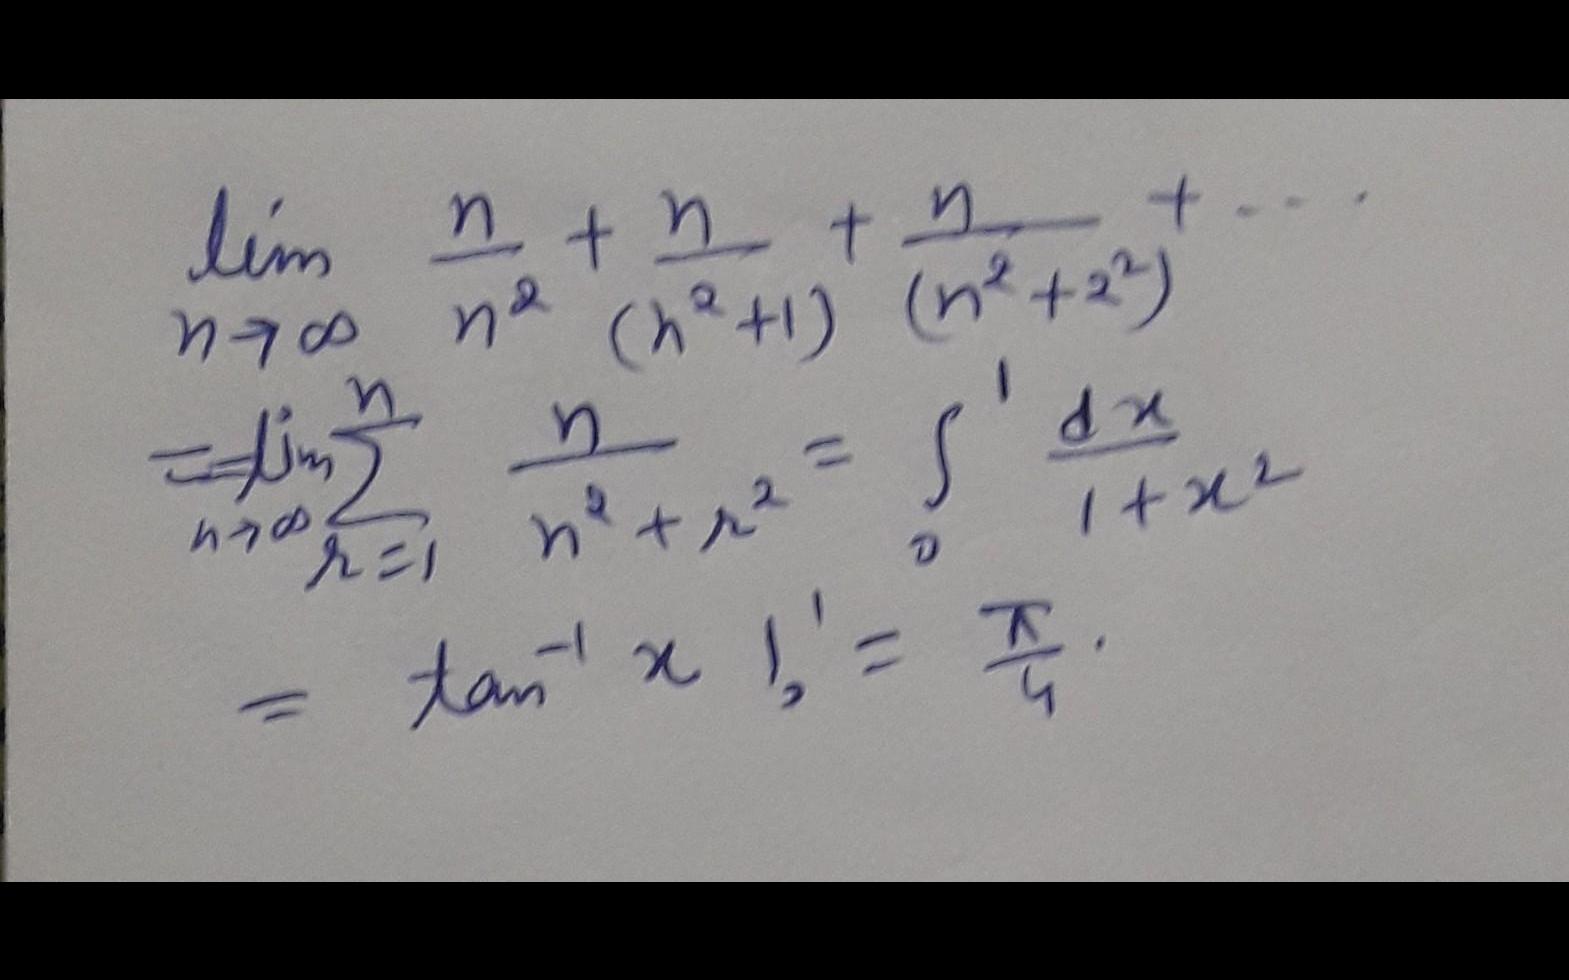 lim n→∞ n/n² + n/(n²+1) + n/(n²+2²) + ....
= = lim n→∞ ∑ r=1 n n/(n²+r²) = ∫₀¹ dx/(1+x²)
= tan⁻¹ x |₀¹ = π/4.